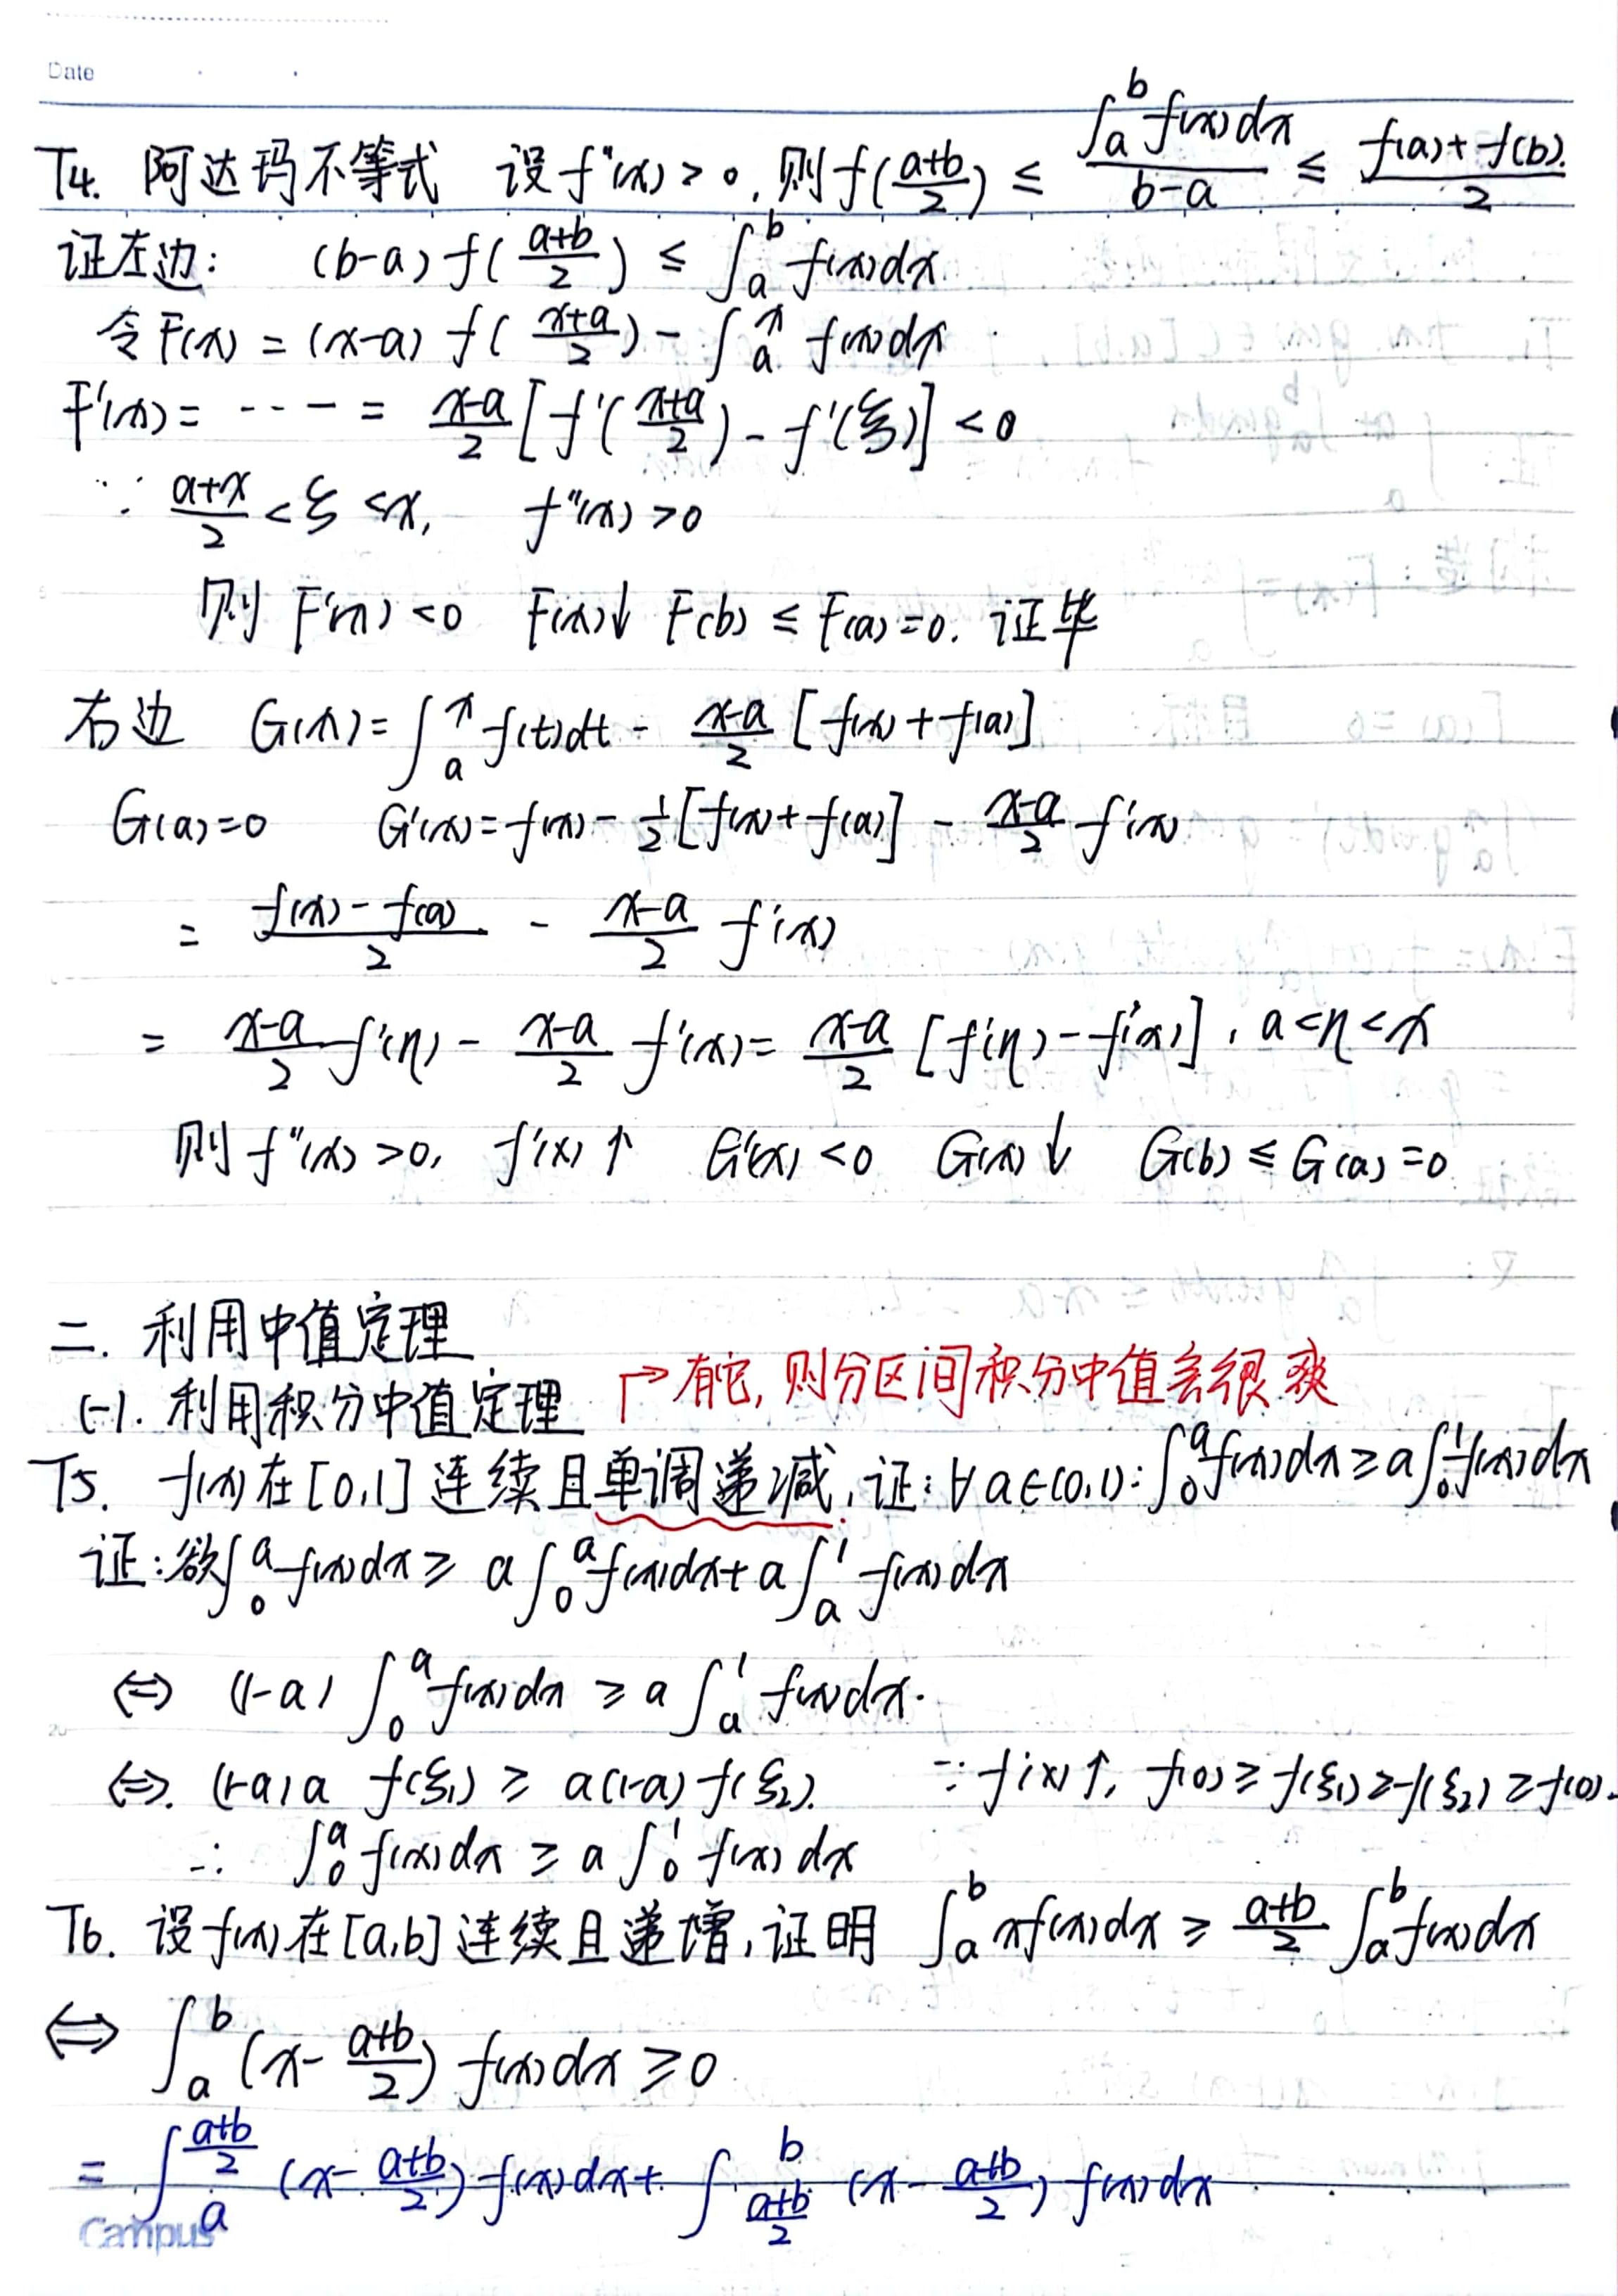 Date
T4. 阿达玛不等式 设f''(x)>0, 则f(\frac{a+b}{2}) ≤ \frac{∫_a^b f(x)dx}{b-a} ≤ \frac{f(a)+f(b)}{2}.
证左边: (b-a) f(\frac{a+b}{2}) ≤ ∫_a^b f(x)dx.
令F(x) = (x-a) f(\frac{x+a}{2}) - ∫_a^x f(x)dx
F'(x) = ---- = \frac{x-a}{2} [f'(\frac{x+a}{2}) - f'(ξ)] < 0
∵ \frac{a+x}{2} < ξ < x, f''(x) > 0
则 F'(x) < 0 F(x)↓ F(b) ≤ F(a) = 0. 证毕
右边 G(x) = ∫_a^x f(t)dt - \frac{x-a}{2} [f(x) + f(a)]
G(a)=0 G'(x) = f(x) - \frac{1}{2}[f(x) + f(a)] - \frac{x-a}{2} f'(x)
= \frac{f(x) - f(a)}{2} - \frac{x-a}{2} f'(x)
= \frac{x-a}{2} f'(η) - \frac{x-a}{2} f'(x) = \frac{x-a}{2} [f'(η) - f'(x)], a<η<x
则 f''(x) > 0, f'(x)↑ G'(x) < 0 G(x)↓ G(b) ≤ G(a) = 0
二. 利用中值定理
→有它, 则分区间积分中值会很爽
(一). 利用积分中值定理
T5. f(x)在[0,1]连续且单调递减, 证: ∀a∈(0,1): ∫_0^a f(x)dx ≥ a∫_0^1 f(x)dx
证: 欲∫_0^a f(x)dx ≥ a∫_0^a f(x)dx + a∫_a^1 f(x)dx
⇔ (1-a) ∫_0^a f(x)dx ≥ a∫_a^1 f(x)dx.
⇔. (1-a)a f(ξ₁) ≥ a(1-a) f(ξ₂). ∵ f(x)↑, f(0) ≥ f(ξ₁) ≥ f(ξ₂) ≥ f(0).
∴ ∫_0^a f(x)dx ≥ a∫_0^1 f(x)dx
T6. 设f(x)在[a,b]连续且递增, 证明 ∫_a^b xf(x)dx ≥ \frac{a+b}{2} ∫_a^b f(x)dx
⇔ ∫_a^b (x - \frac{a+b}{2}) f(x)dx ≥ 0
= ∫_a^{\frac{a+b}{2}} (x - \frac{a+b}{2}) f(x)dx + ∫_{\frac{a+b}{2}}^b (x - \frac{a+b}{2}) f(x)dx
Campus